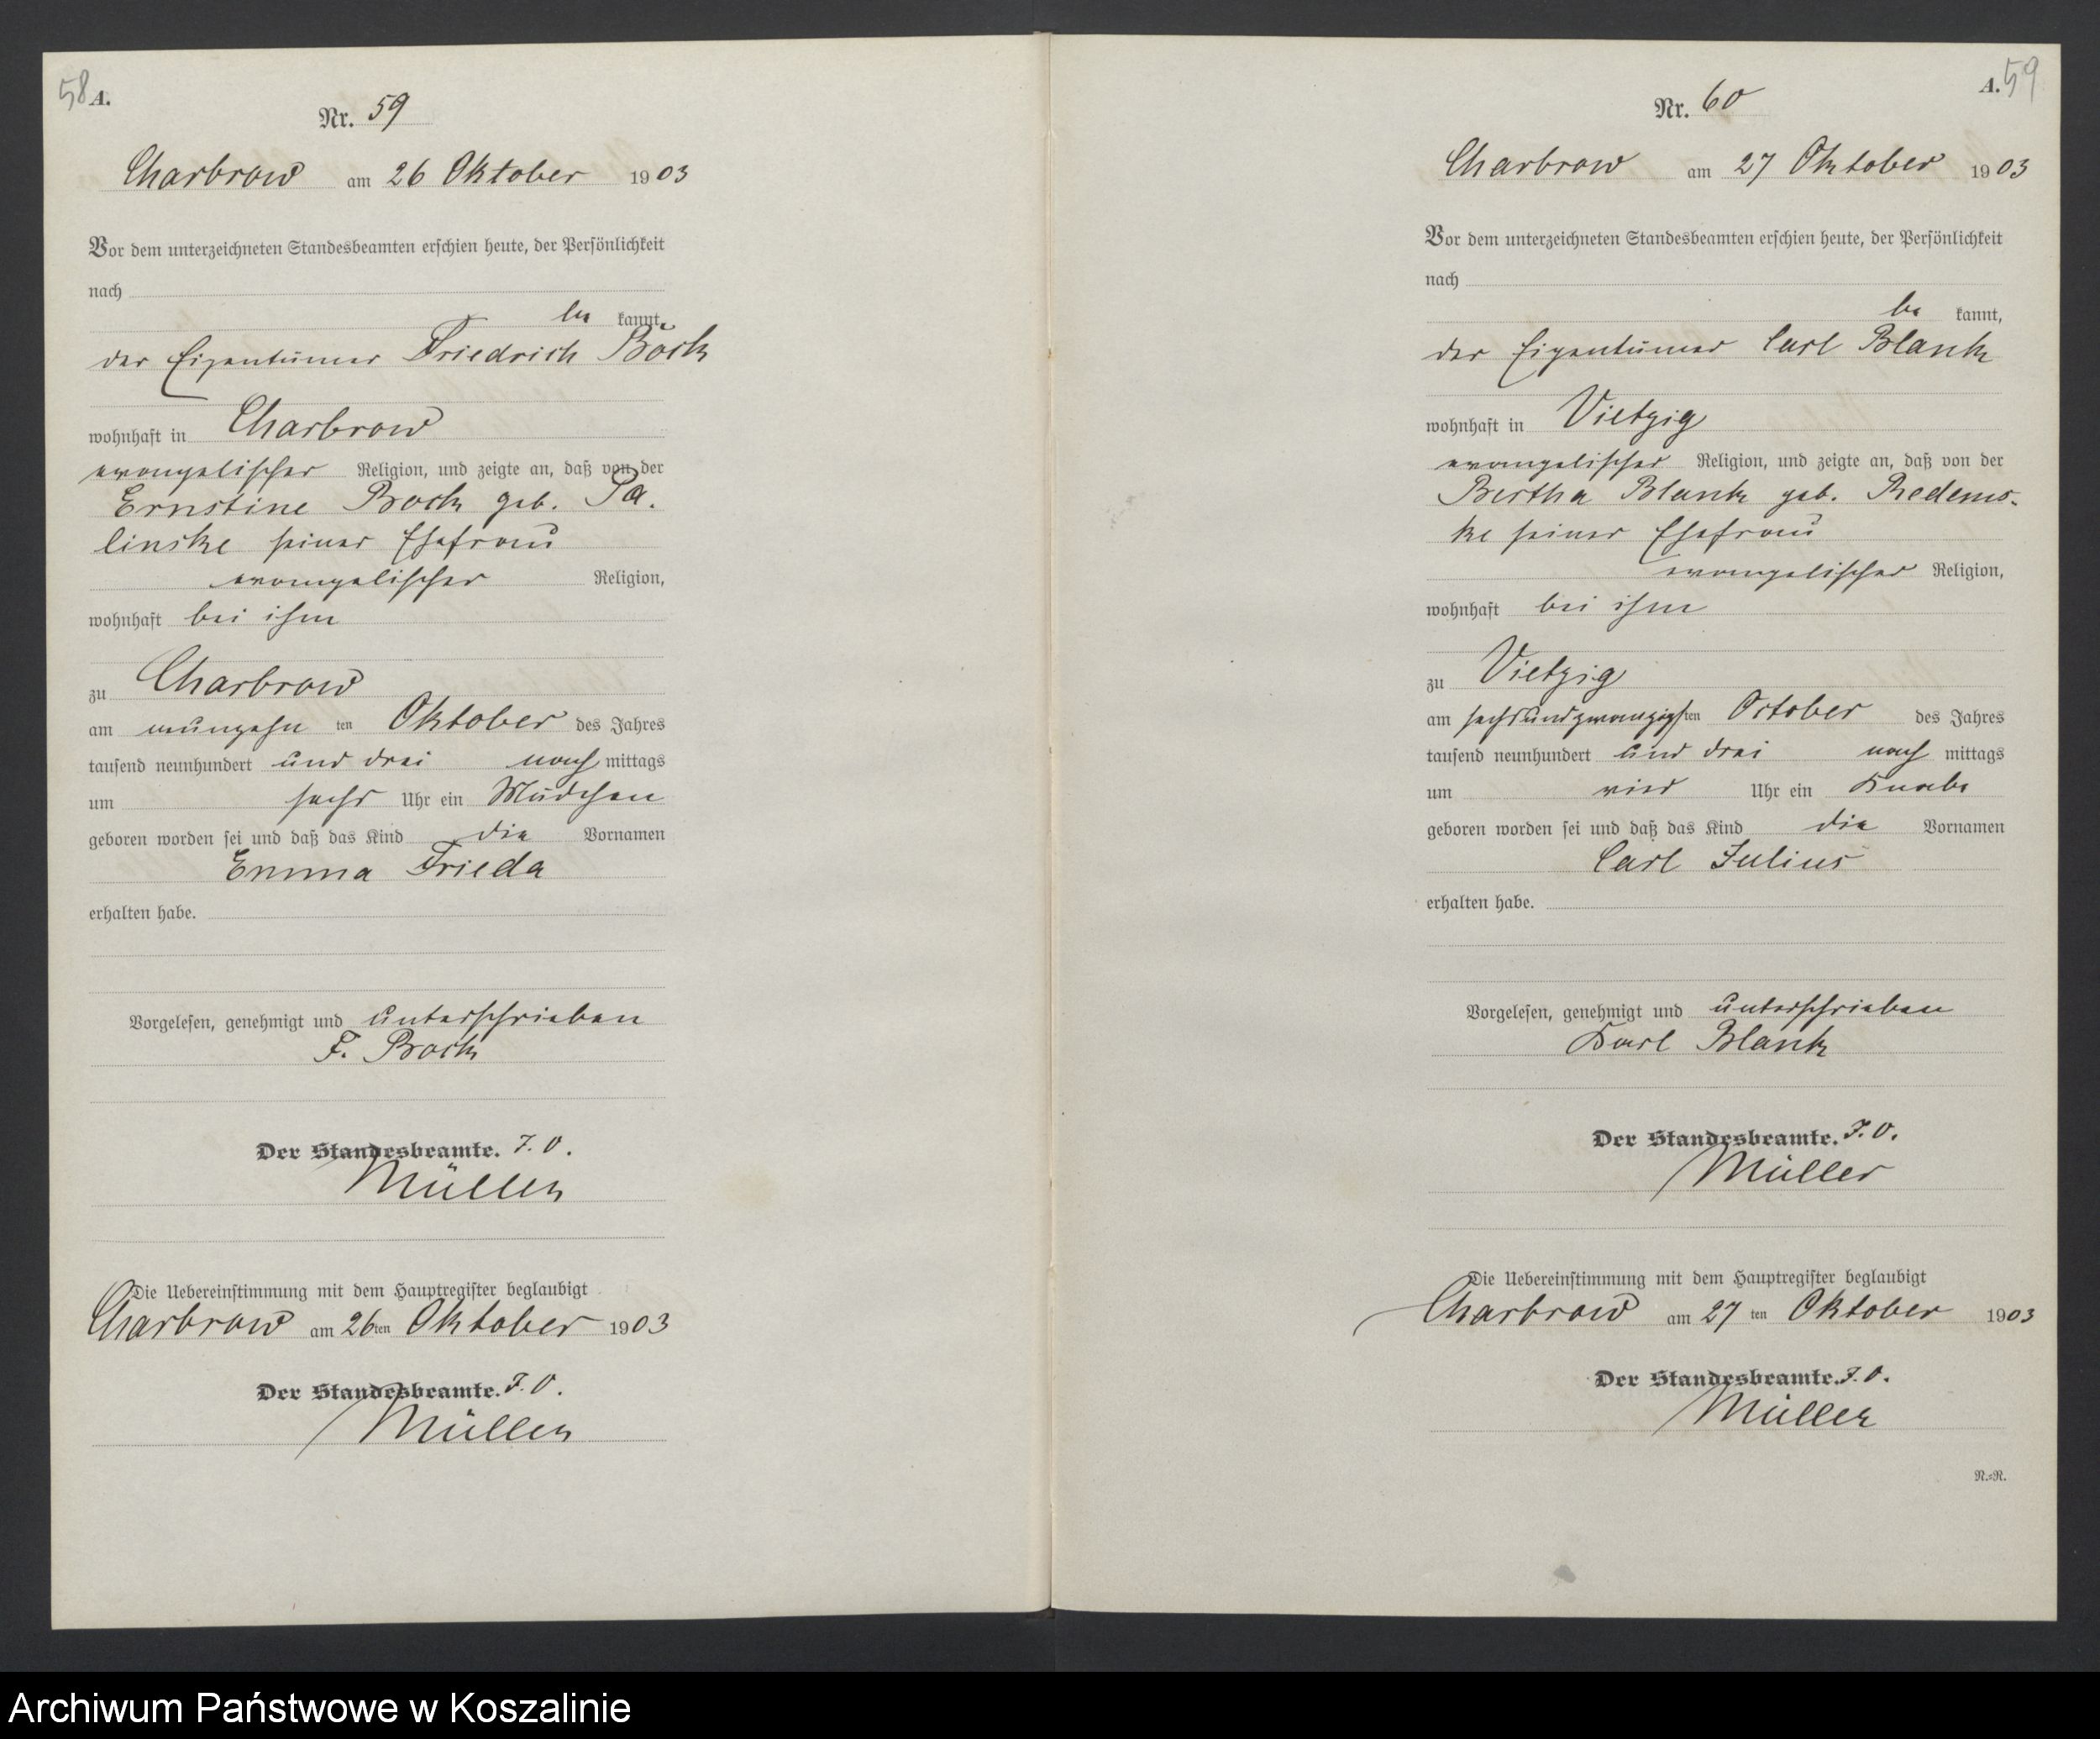 58 A.
Nr. 59
Charbrow am 26 Oktober 1903
Vor dem unterzeichneten Standesbeamten erschien heute, der Persönlichkeit
nach
be kannt,
der Eigentümer Friedrich Bock
wohnhaft in Charbrow
evangelischer Religion, und zeigte an, daß von der
Ernstine Bock geb. Pa-
linske seiner Ehefrau
evangelischer Religion,
wohnhaft bei ihm
zu Charbrow
am neunzehn ten Oktober des Jahres
tausend neunhundert und drei nach mittags
um sechs Uhr ein Mädchen
geboren worden sei und daß das Kind die Vornamen
Emma Frieda
erhalten habe.
Vorgelesen, genehmigt und unterschrieben
F. Bock
Der Standesbeamte. J. V.
Müller
Die Uebereinstimmung mit dem Hauptregister beglaubigt
Charbrow am 26ten Oktober 1903
Der Standesbeamte. J. V.
Müller
A. 59
Nr. 60
Charbrow am 27 Oktober 1903
Vor dem unterzeichneten Standesbeamten erschien heute, der Persönlichkeit
nach
be kannt,
der Eigentümer Carl Blank
wohnhaft in Vietzig
evangelischer Religion, und zeigte an, daß von der
Bertha Blank geb. Redems-
ke seiner Ehefrau
evangelischer Religion,
wohnhaft bei ihm
zu Vietzig
am sechsundzwanzigsten October des Jahres
tausend neunhundert und drei nach mittags
um vier Uhr ein Knabe
geboren worden sei und daß das Kind die Vornamen
Carl Julius
erhalten habe.
Vorgelesen, genehmigt und unterschrieben
Karl Blank
Der Standesbeamte. J. V.
Müller
Die Uebereinstimmung mit dem Hauptregister beglaubigt
Charbrow am 27 ten Oktober 1903
Der Standesbeamte. J. V.
Müller
N.=R.
Archiwum Państwowe w Koszalinie